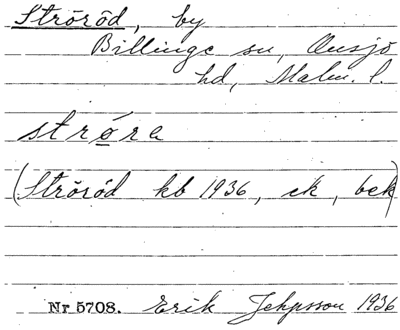 Ströröd, by
Billinge sn, Onsjö
hd, Malm. l.
strøra
(Ströröd kb 1936, ek, bek)
Nr 5708. Erik Jeppsson 1936